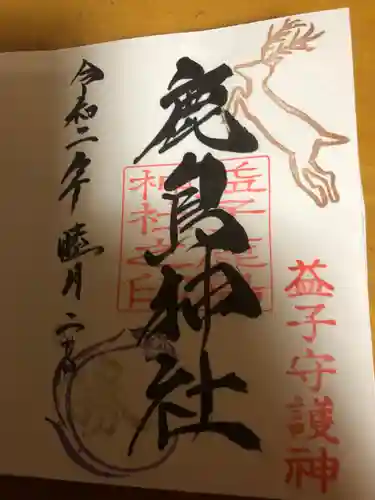 益子守護神
鹿島神社
益子鹿島
神社之印
令和二年睦月二日